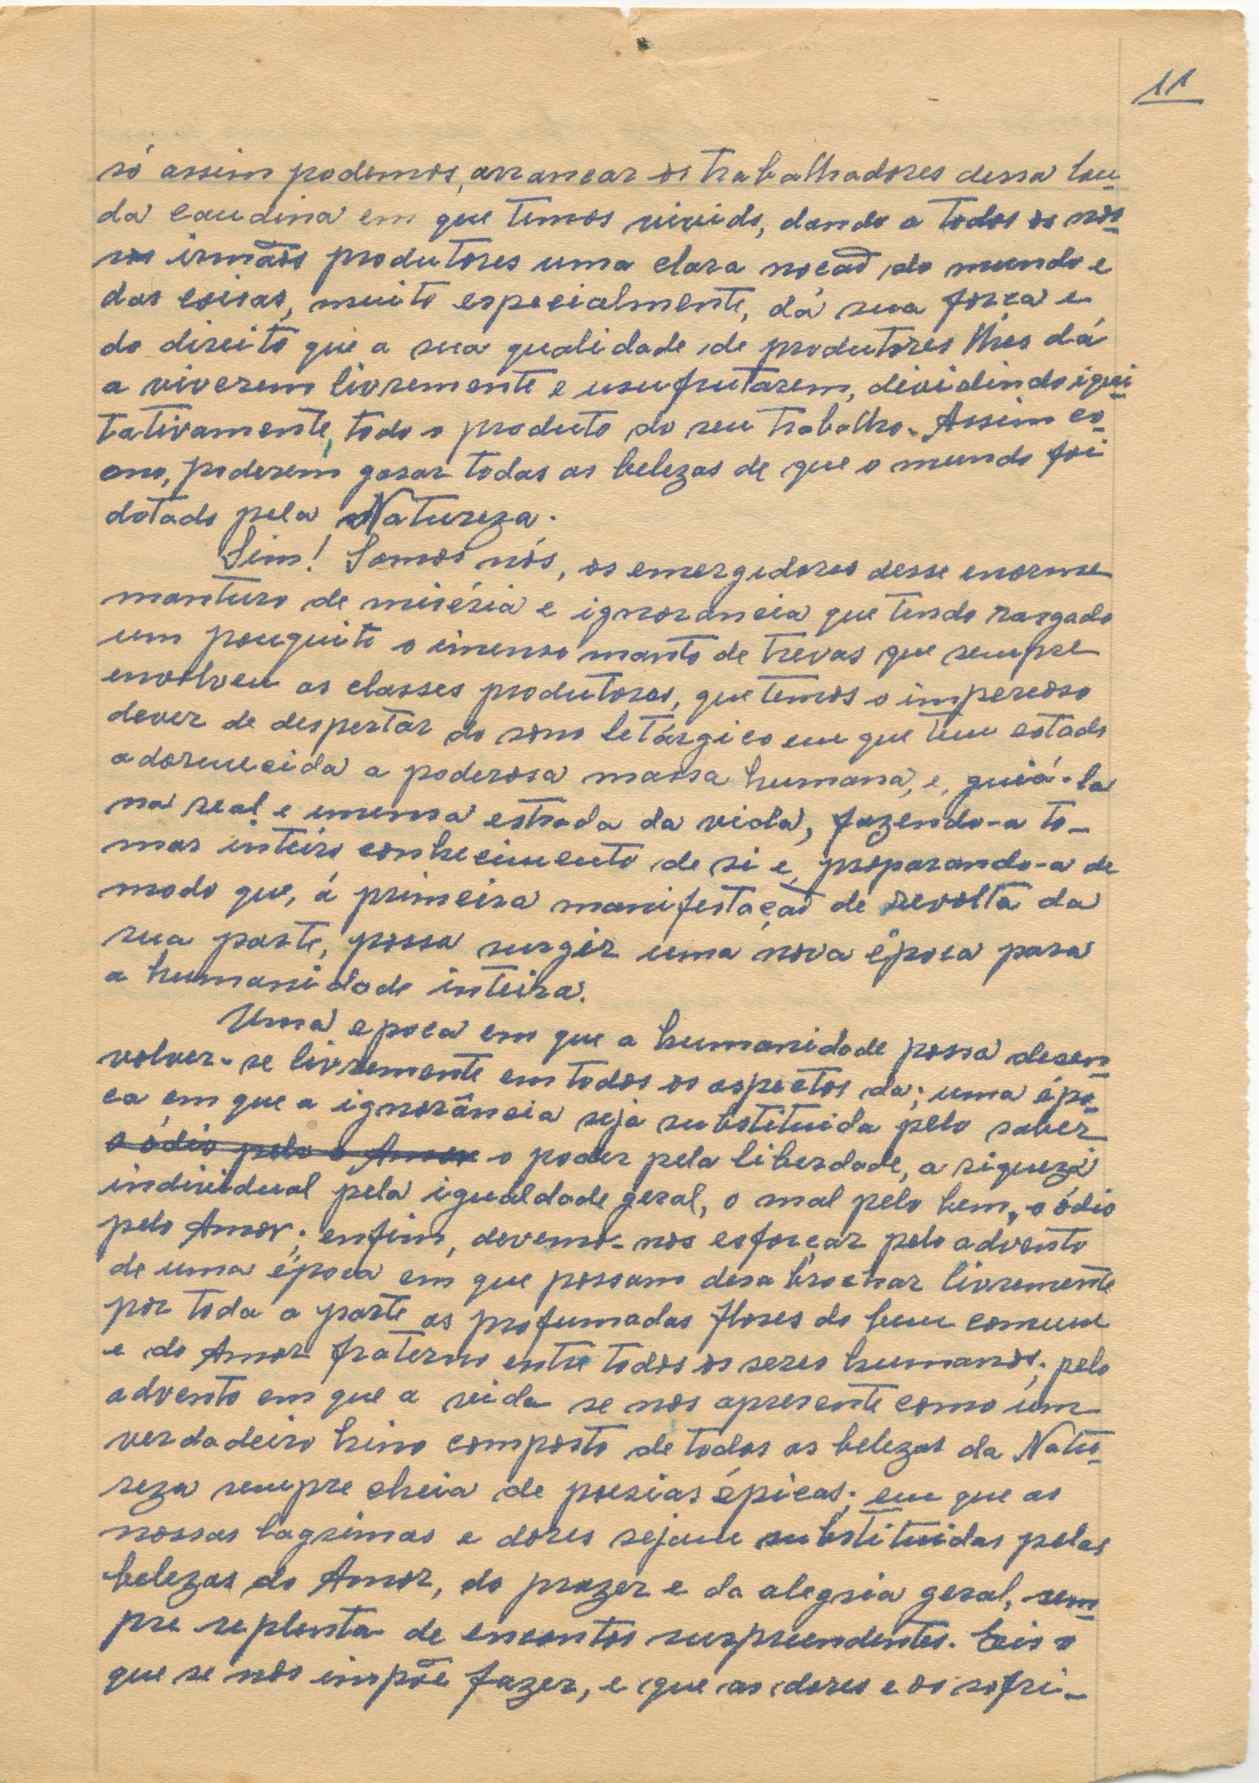 11
só assim podemos, arrancar os trabalhadores dessa lou
da caudina em que temos vivido, dando a todos os nos-
sos irmãos produtores uma clara noção do mundo e
das coisas, muito especialmente, da sua força e
do direito que a sua qualidade de produtores lhes dá
a viverem livremente e usufrutarem, dividindo iqui-
tativamente, todo o produto do seu trabalho. Assim co-
mo, poderem gosar todas as belezas de que o mundo foi
dotado pela Natureza.
Sim! Somos nós, os emergidores desse enorme
monturo de miséria e ignorancia que tendo rasgado
um pouquito o imenso manto de trevas que sempre
envolveu as classes produtoras, que temos o imperioso
dever de despertar do sono letárgico em que tem estado
adormecida a poderosa massa humana, e, guiá-la
na real e imensa estrada da vida, fazendo-a to-
mar inteiro conhecimento de si e, preparando-a de
modo que, á primeira manifestação de revolta da
sua parte, possa surgir uma nova época para
a humanidade inteira.
Uma epoca em que a humanidade possa desen-
volver-se livremente em todos os aspectos da; uma épo-
ca em que a ignorância seja substituida pelo saber
o ódio pelo o Amor o poder pela liberdade, a riqueza
individual pela igualdade geral, o mal pelo bem, o ódio
pelo Amor; enfim, devemo-nos esforçar pelo advento
de uma época em que possam desabrochar livremente
por toda a parte as profumadas flores do bem comum
e do Amor fraterno entre todos os seres humanos; pelo
advento em que a vida se nos apresente como um
verdadeiro hino composto de todas as belezas da Natu-
reza sempre cheia de poesias épicas; em que as
nossas lagrimas e dores sejam substituidas pelas
belezas do Amor, do prazer e da alegria geral, sem-
pre repleta de encantos surpreendentes. Eis o
que se nos impõe fazer, e que as dores e os sofri-